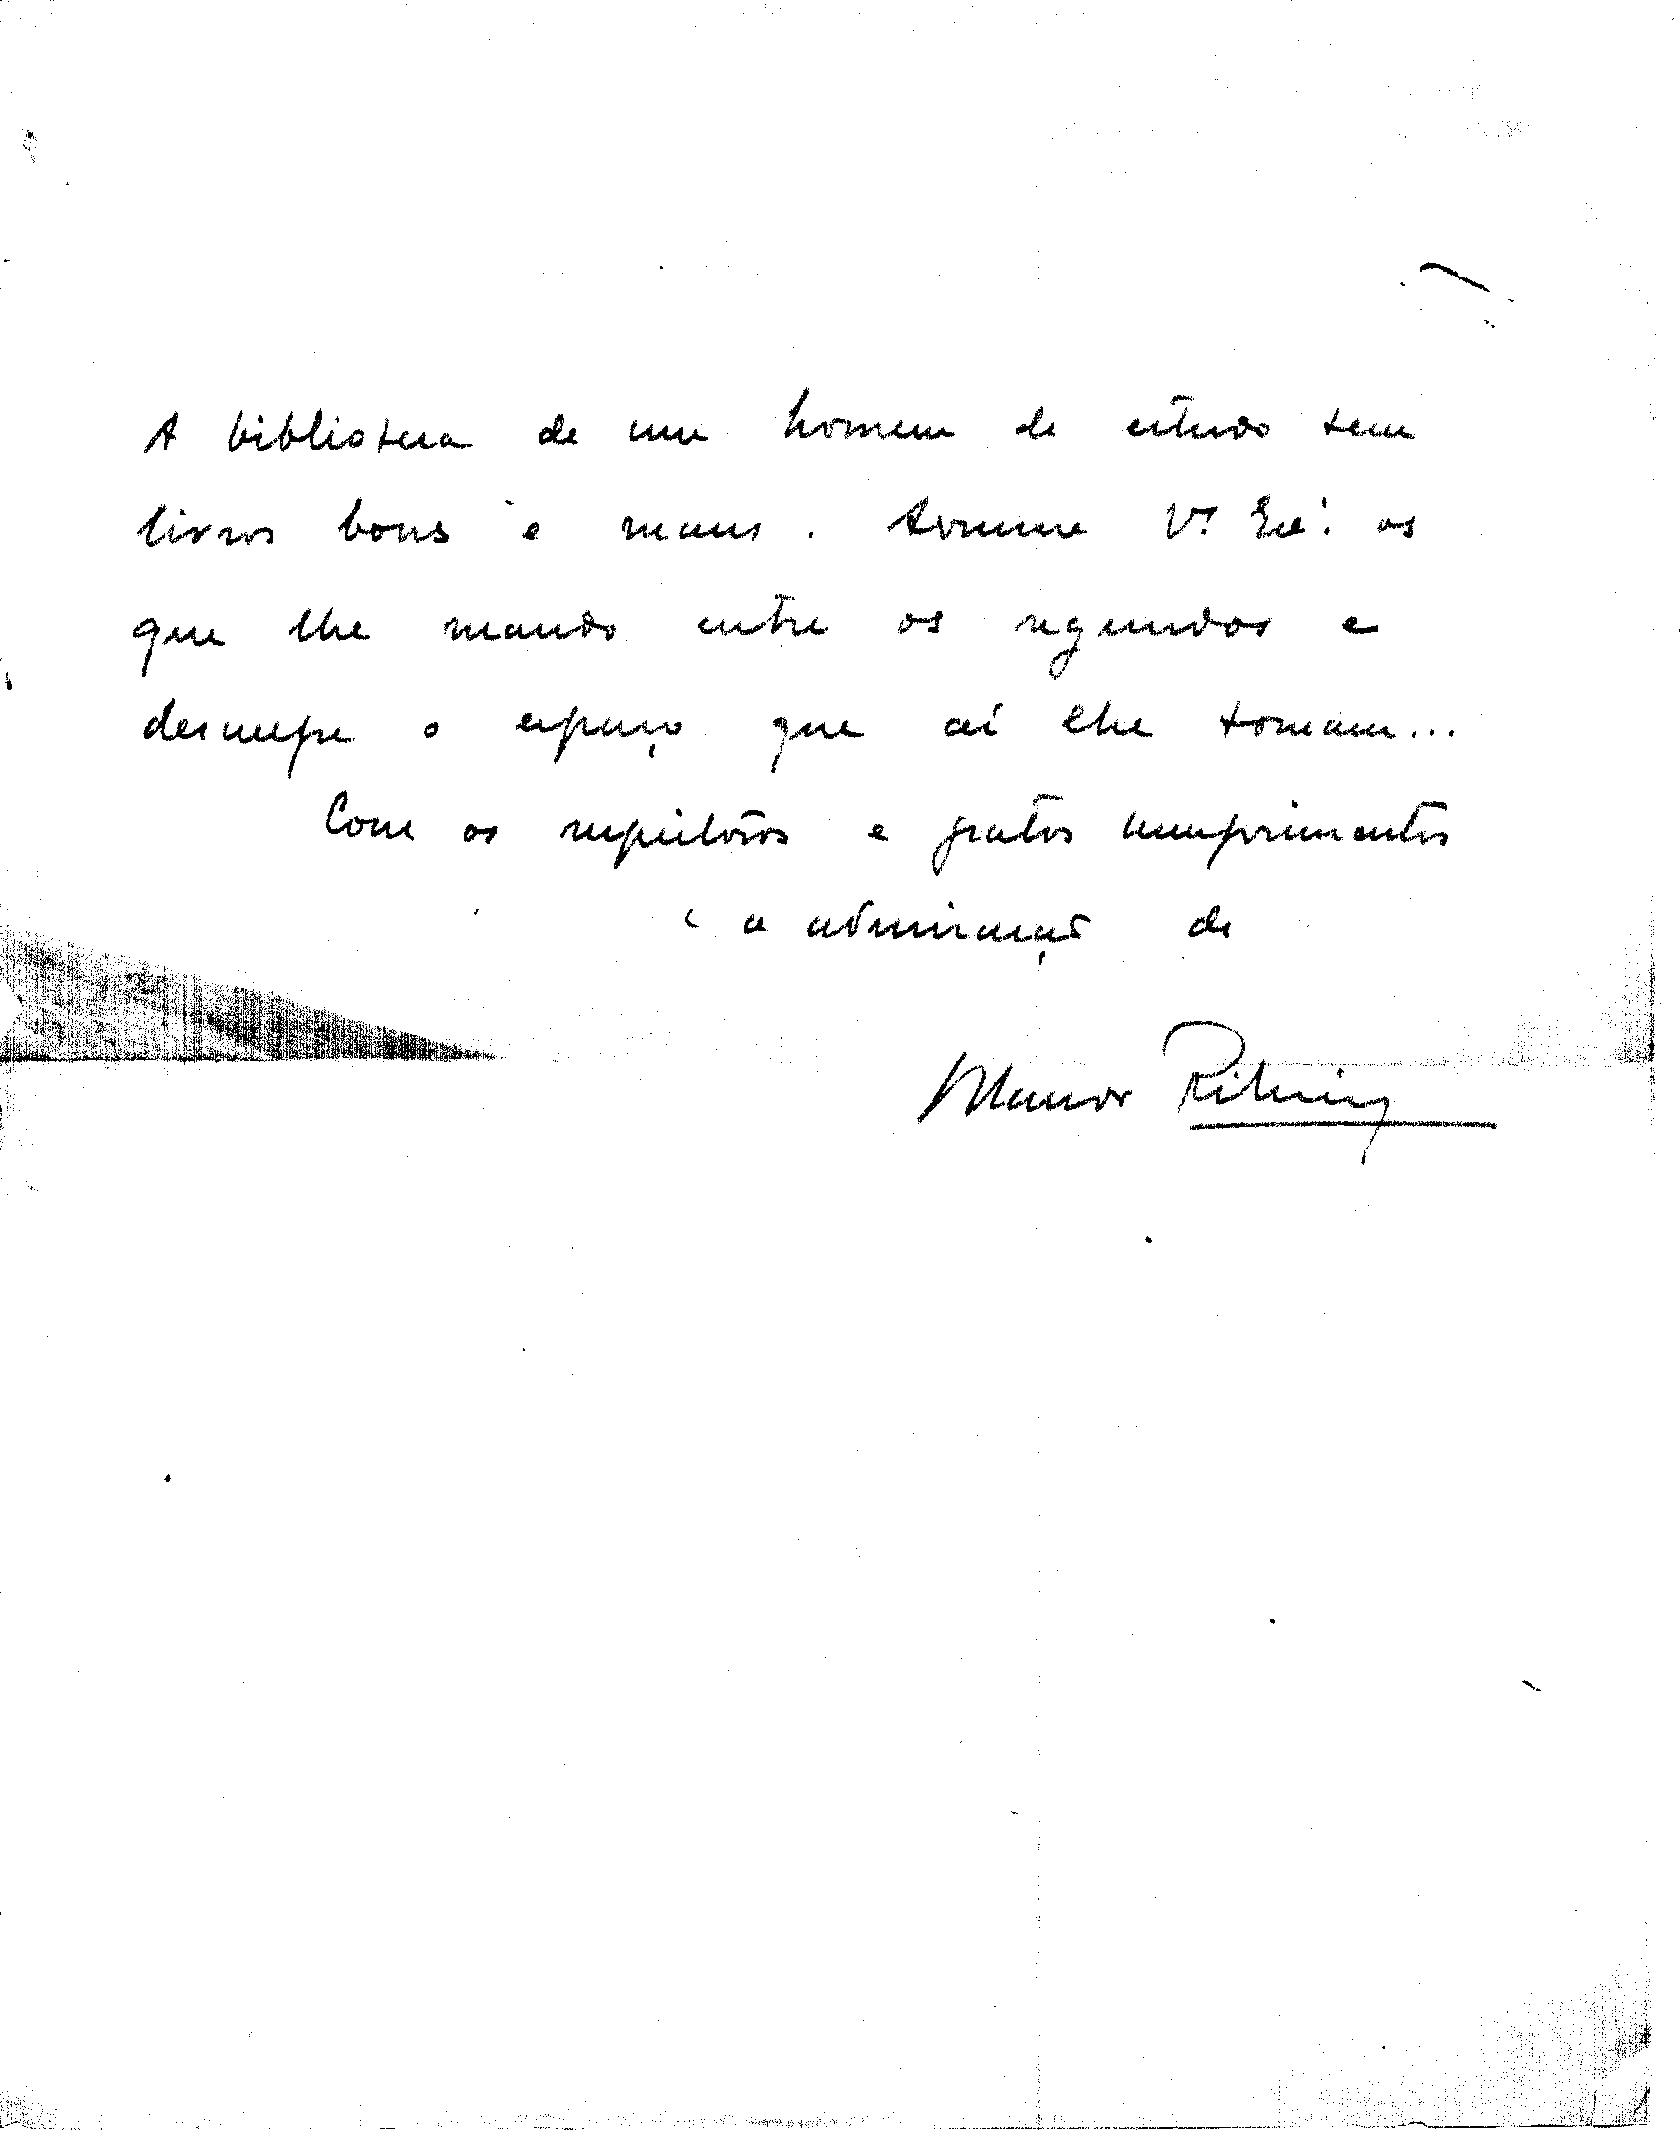 A biblioteca de um homem de estudo tem
livros bons e maus. Arrume V. Exª. os
que lhe mando entre os segundos e
desculpe o espaço que aí lhe tomam...
Com os respeitosos e gratos cumprimentos
e a admiração de